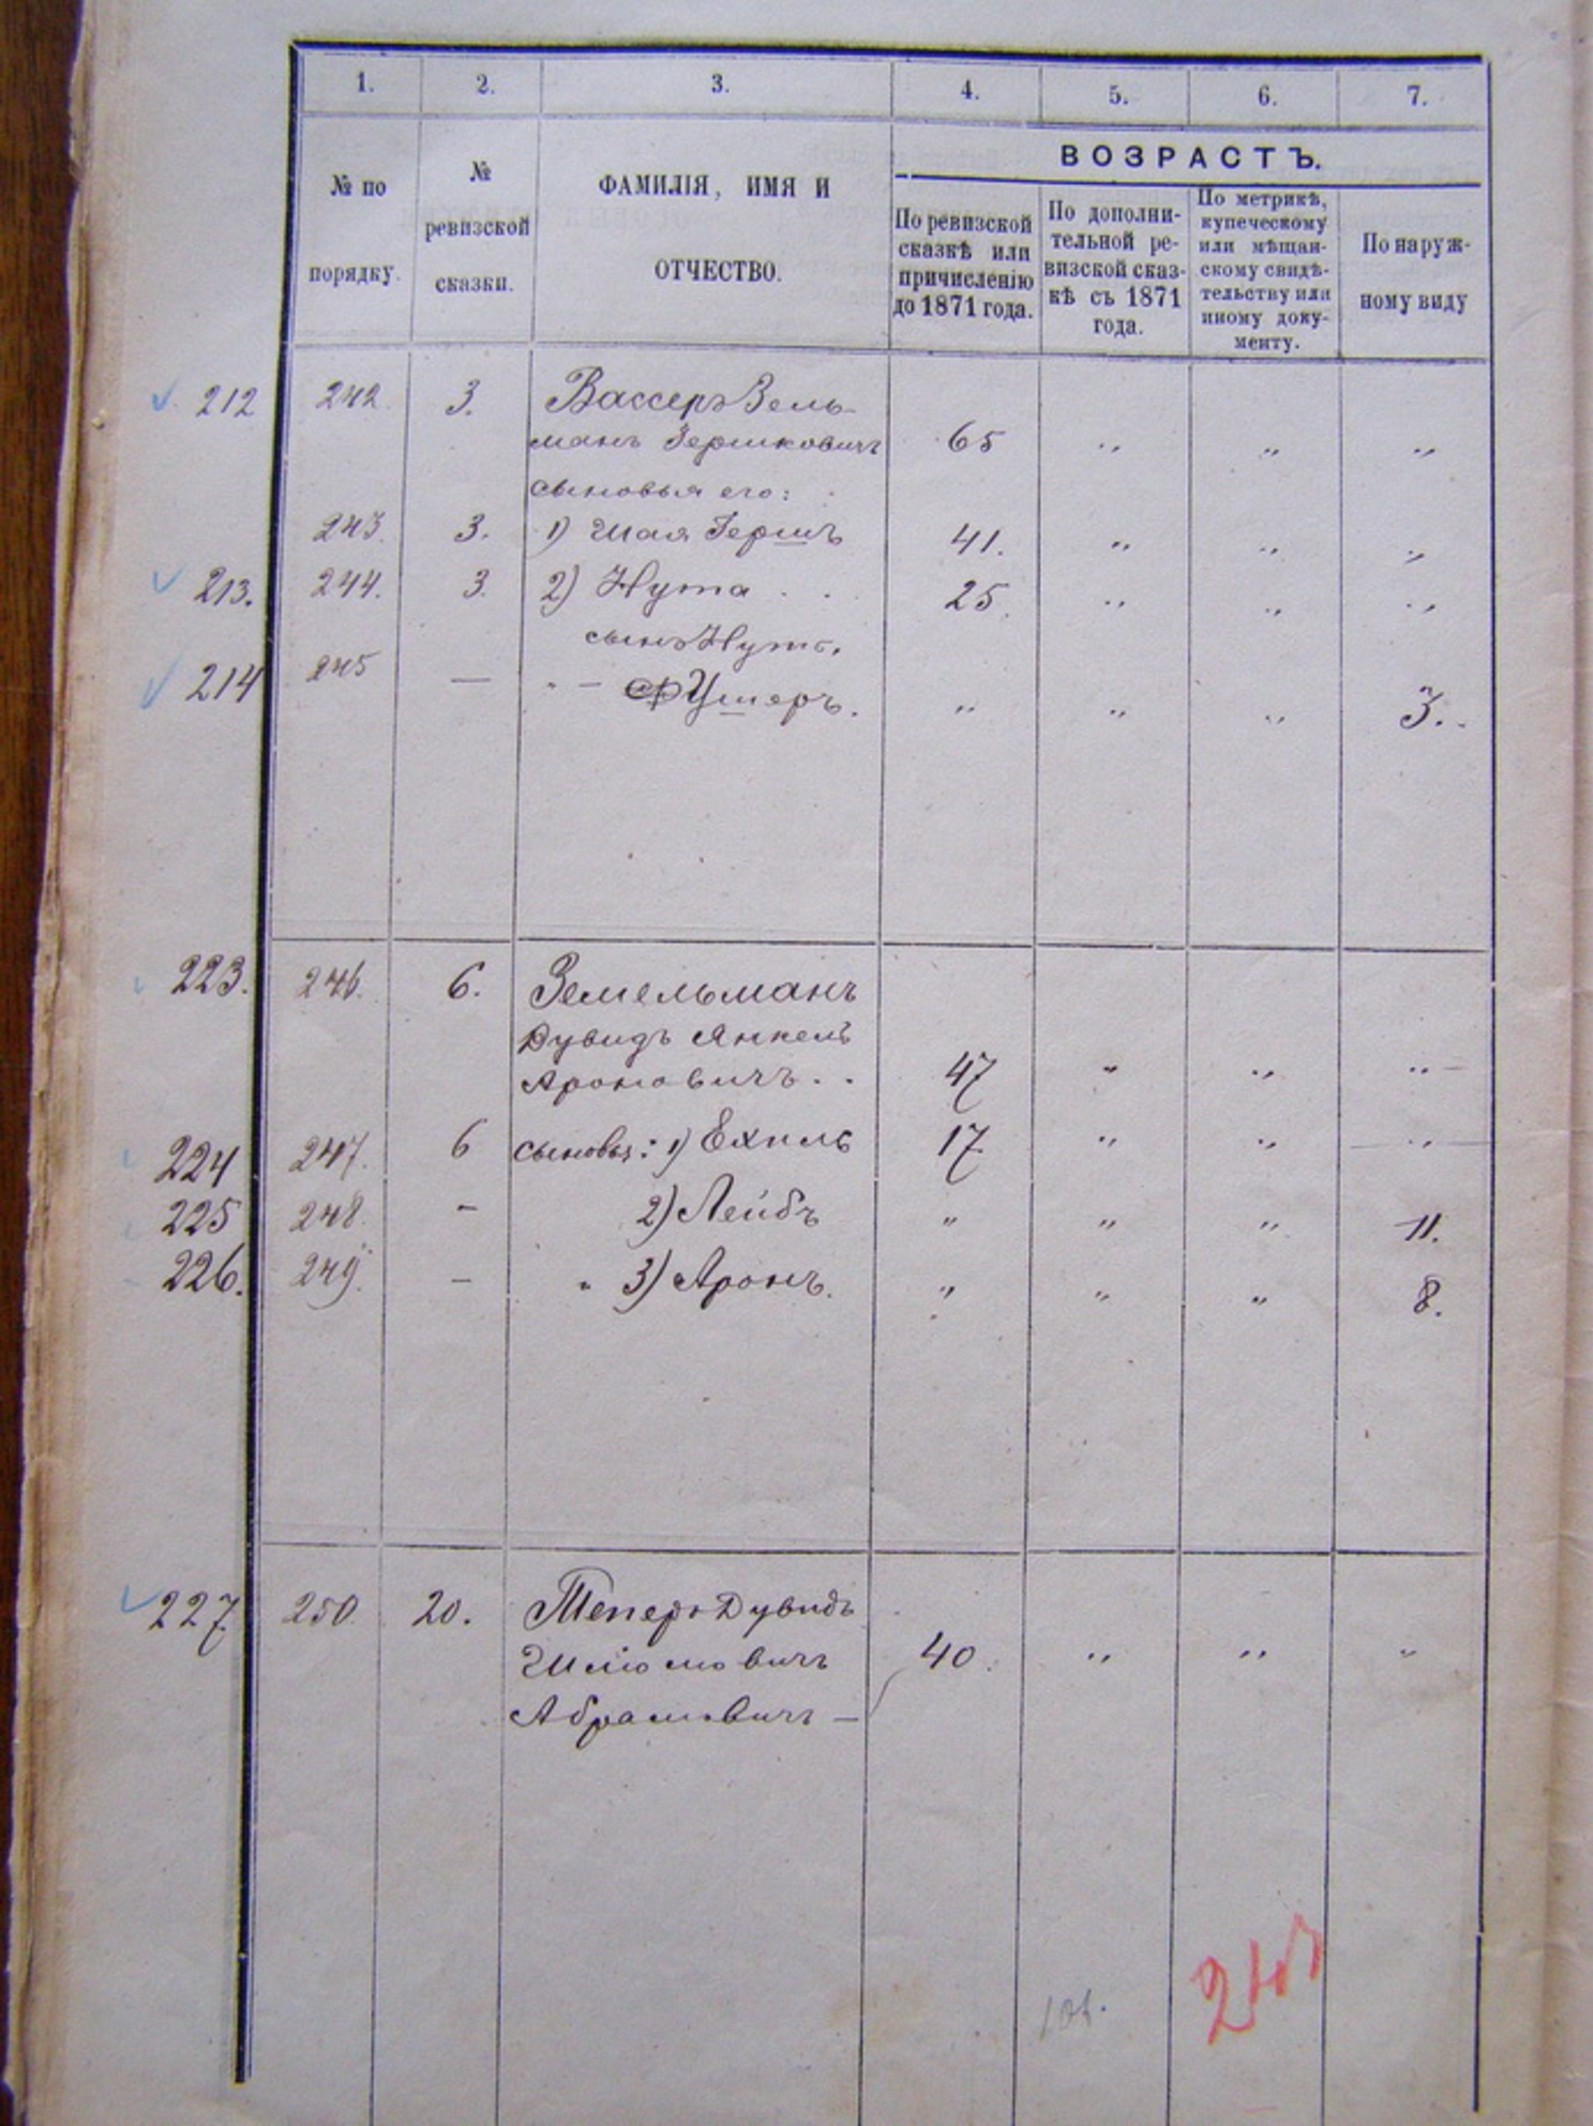 1. 2. 3. 4. 5. 6. 7.
№ по порядку.
№ ревизской сказки.
ФАМИЛІЯ, ИМЯ И
ОТЧЕСТВО.
ВОЗРАСТЪ.
По ревизской
сказкѣ или
причисленію
до 1871 года.
По дополни-
тельной ре-
визской сказ-
кѣ съ 1871
года.
По метрикѣ,
купеческому
или мѣщан-
скому свидѣ-
тельству или
иному доку-
менту.
По наруж-
ному виду
212 242. 3. Вассеръ Зель-
манъ Гершковичъ 65 " " "
сыновья его:
243. 3. 1) Шая Гершъ 41. " " "
213. 244. 3. 2) Нута . . 25. " " "
сынъ Нуты,
214 245 — " — Ушеръ. " " " 3.
223. 246. 6. Земельманъ
Дувидъ Янкель
Ароновичъ . . 47 " " "
224 247. 6 сыновья: 1) Ехиль 17 " " "
225 248. - 2) Лейбъ " " " 11.
226. 249. - " 3) Аронъ. " " " 8.
227 250. 20. Теперъ Дувидъ
Шліомовичъ 40. " " "
Абрамовичъ —